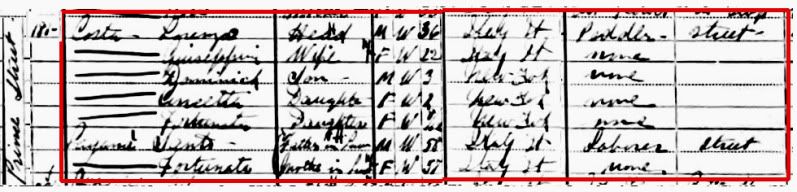 Prince Street
Costa - Lorenzo Head M W 36 Italy It Peddler - street -
Guiseppini Wife F W 22 Italy It none
Dominick Son - M W 3 New York none
Concetta Daughter F W 2 New York none
Fortunata Daughter F W New York none
Santo - Father in law M W 58 Italy It Laborer street
Fortunata Mother in law F W 57 Italy It none